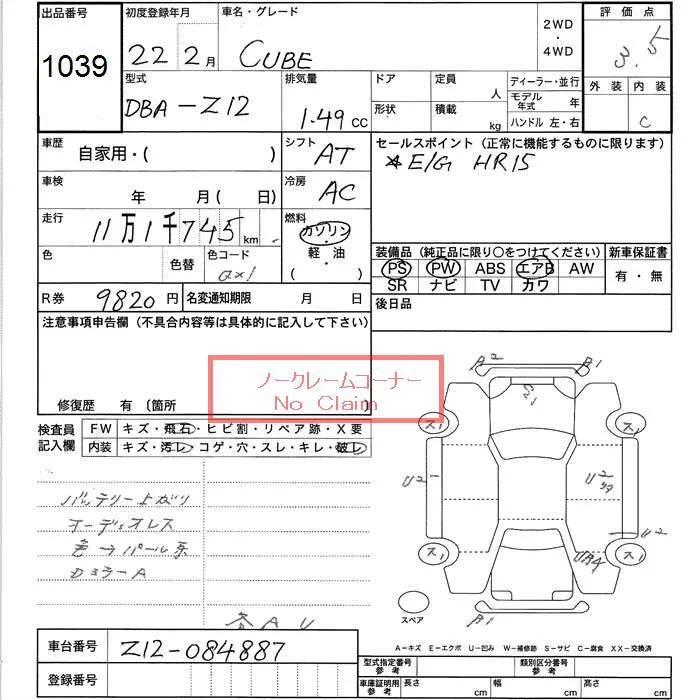 出品番号
1039
初度登録年月
22 2月
車名・グレード
CUBE
2WD
・
4WD
評価点
3.5
外装 内装
C
型式
DBA-Z12
排気量
1.49 CC
ドア
定員
人
形状
積載
kg
ディーラー・並行
モデル年式 年
ハンドル 左・右
車歴
自家用・( )
シフト
AT
セールスポイント (正常に機能するものに限ります)
★E/G HR15
車検
年 月(日)
冷房
AC
走行
11万1千745km
燃料
ガソリン
・
軽油
( )
色
色替
色コード
QX1
装備品 (純正品に限り○をつけてください)
PS PW ABS エアB AW
SR ナビ TV カワ
新車保証書
有・無
R券
9820円
名変通知期限
月 日
後日品
注意事項申告欄 (不具合内容等は具体的に記入して下さい)
ノークレームコーナー
No Claim
修復歴 有 (箇所 )
検査員記入欄
FW キズ・飛石・ヒビ割・リペア跡・X要
内装 キズ・汚レ・コゲ・穴・スレ・キレ・破レ
バッテリー上がり
オーディオレス
色→パール系
カラーA
各AU
A2
B1
S1
ス1
ス1
U2
U2
U2
UA4
ス1
ス1
B1
スペア
A-キズ E-エクボ U-凹み W-補修跡 S-サビ C-腐食 XX-交換済
車台番号
Z12-084887
登録番号
型式指定番号 参考
類別区分番号 参考
車庫証明用 参考
長さ cm
幅 cm
高さ cm